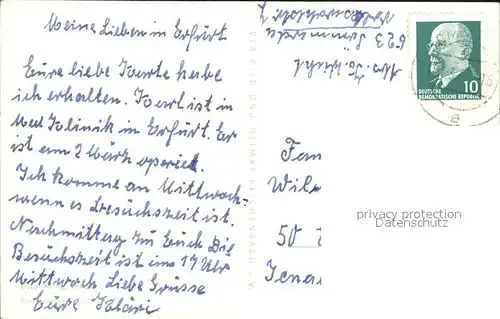 Meine Lieben in Erfurt
Eure liebe Karte habe
ich erhalten. Karl ist in
Klinik in Erfurt. Er
ist am 2 März operiet.
Ich komme am Mittwoch
wenn es Besuchszeit ist.
Nachmittag zu Euch Die
Besuchszeit ist um 17 Uhr
Mittwoch Liebe Grüsse
Eure Kläri
523 Sömmerda
10
DEUTSCHE
DEMOKRATISCHE REPUBLIK
Fam
Wil
privacy protection
Datenschutz
50
Jena